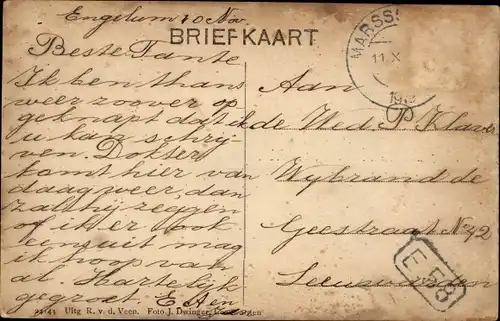 Engelum 10 Nov.
BRIEFKAART
Beste Tante
Ik ben thans
weer zoover op
geknapt dat ik
u kan schrij
ven. Dokter
komt hier van
daag weer, dan
zal hij zeggen
of ik er ook
eens uit mag
ik hoop van
al. Hartelijk
gegroet. E
Aan
de Wed. P Klaver
Wybrand de
Geestraat No 42
Leeuwarden
MARSS
11.X
E 58
94143 Uitg R. v. d. Veen. Foto J. Dwinger,